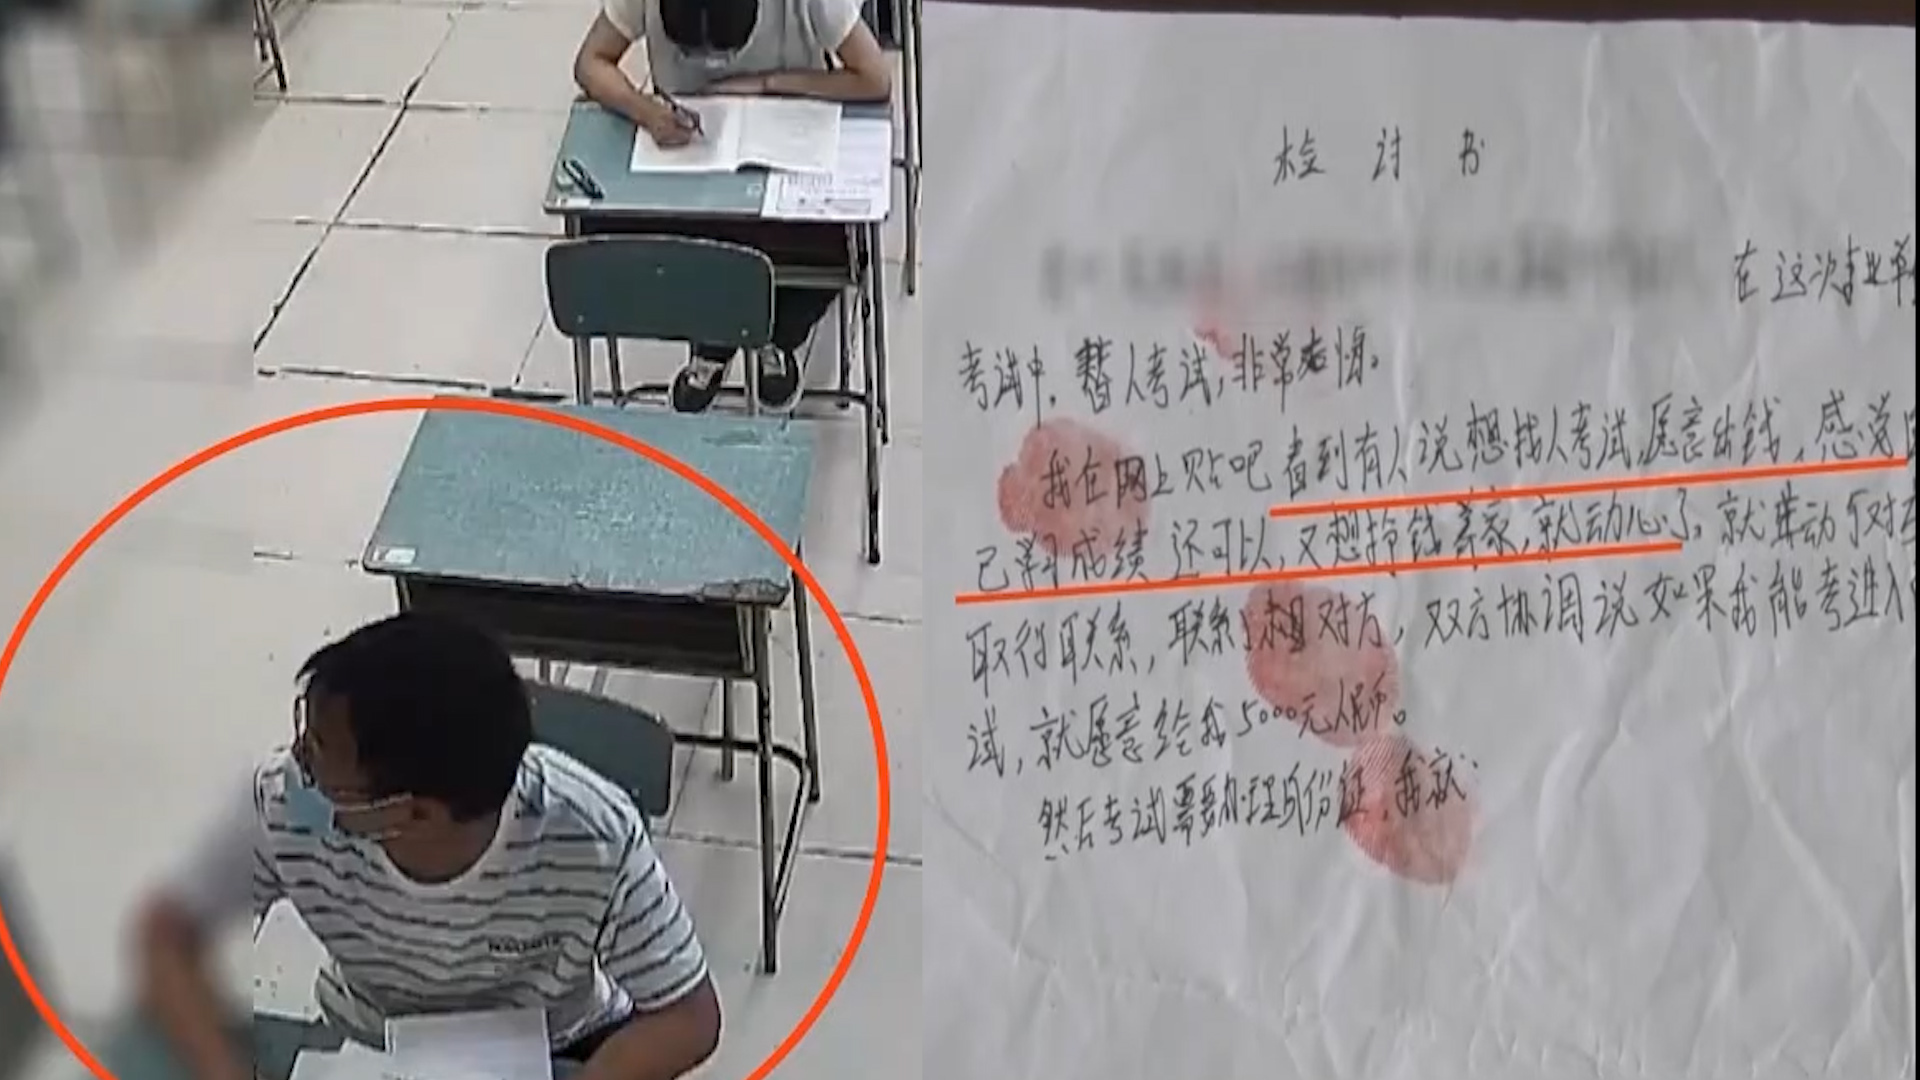 检讨书
在这次事业单
考试中，替人考试，非常后悔。
我在网上贴吧看到有人说想找人考试，愿意出钱，感觉自
己学习成绩还可以，又想挣钱养家，就动心了，就主动和对方
取得联系，联系了相对方，双方协调说如果我能考进入
试，就愿意给我5000元人民币。
然后考试需要办理身份证，我就